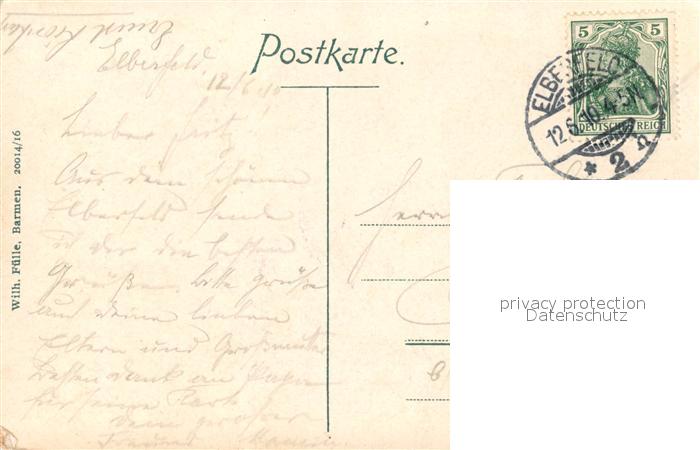 Postkarte.
5 5
DEUTSCHES REICH
ELBERFELD
12.6.10.4-5N.
* 2 n
Elberfeld, 12/6 10
Lieber Fritz!
Aus dem schönen
Elberfeld sende
ich dir die besten
Grüße. Bitte grüße
auch deine lieben
Eltern und Großmutter
Besten dank an Papa
für seine Karte
dein
Herrn
Wilh. Fülle, Barmen. 20014/16
privacy protection
Datenschutz